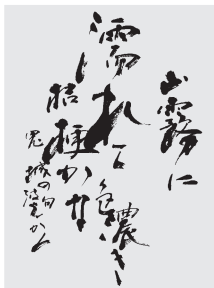 山霧に
濡れて色濃き
桔梗かな
鬼城の句